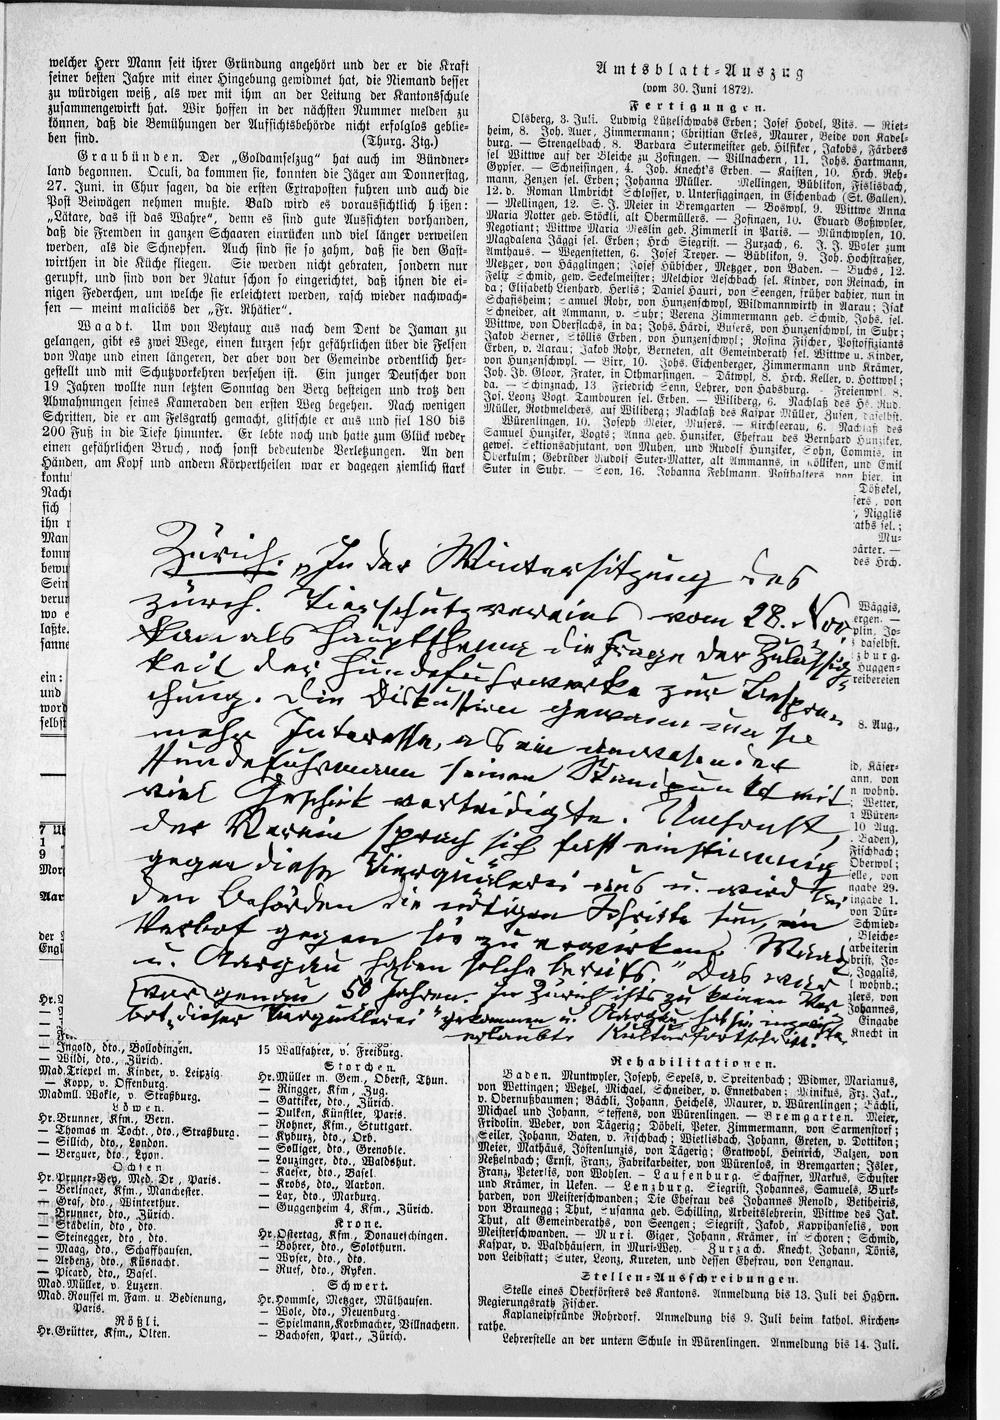 welcher Herr Mann seit ihrer Gründung angehört und der er die Kraft
seiner besten Jahre mit einer Hingebung gewidmet hat, die Niemand besser
zu würdigen weiß, als wer mit ihm an der Leitung der Kantonsschule
zusammengewirkt hat. Wir hoffen in der nächsten Nummer melden zu
können, daß die Bemühungen der Aufsichtsbehörde nicht erfolglos geblie-
ben sind. (Thurg. Ztg.)
Graubünden. Der „Goldamselzug“ hat auch im Bündner-
land begonnen. Oculi, da kommen sie, konnten die Jäger am Donnerstag,
27. Juni, in Chur sagen, da die ersten Extraposten fuhren und auch die
Post Beiwägen nehmen mußte. Bald wird es voraussichtlich h ißen:
„Lätare, das ist das Wahre“, denn es sind gute Aussichten vorhanden,
daß die Fremden in ganzen Schaaren einrücken und viel länger verweilen
werden, als die Schnepfen. Auch sind sie so zahm, daß sie den Gast-
wirthen in die Küche fliegen. Sie werden nicht gebraten, sondern nur
gerupft, und sind von der Natur schon so eingerichtet, daß ihnen die ei-
nigen Federchen, um welche sie erleichtert werden, rasch wieder nachwach-
sen — meint maliciös der „Fr. Rhätier“.
Waadt. Um von Veytaux aus nach dem Dent de Jaman zu
gelangen, gibt es zwei Wege, einen kurzen sehr gefährlichen über die Felsen
von Naye und einen längeren, der aber von der Gemeinde ordentlich her-
gestellt und mit Schutzvorkehren versehen ist. Ein junger Deutscher von
19 Jahren wollte nun letzten Sonntag den Berg besteigen und trotz den
Abmahnungen seines Kameraden den ersten Weg begehen. Nach wenigen
Schritten, die er am Felsgrath gemacht, glitschte er aus und fiel 180 bis
200 Fuß in die Tiefe hinunter. Er lebte noch und hatte zum Glück weder
einen gefährlichen Bruch, noch sonst bedeutende Verletzungen. An den
Händen, am Kopf und andern Körpertheilen war er dagegen ziemlich stark
Amtsblatt-Auszug
(vom 30. Juni 1872).
Fertigungen.
Olsberg, 3. Juli. Ludwig Lützelschwabs Erben; Josef Hodel, Vits. — Riet-
heim, 8. Joh. Auer, Zimmermann; Christian Erles, Maurer, Beide von Kadel-
burg. — Strengelbach, 8. Barbara Sutermeister geb. Hilfiker, Jakobs, Färbers
sel Wittwe auf der Bleiche zu Zofingen. — Villnachern, 11. Johs. Hartmann,
Gypser. — Schneisingen, 4. Joh. Knecht's Erben. — Kaisten, 10. Hrch. Reh-
mann, Zenzen sel. Erben; Johanna Müller. Mellingen, Büblikon, Fislisbach,
12. d. Roman Umbricht Schlosser, v. Untersiggingen, in Eschenbach (St. Gallen).
— Mellingen, 12. S. J. Meier in Bremgarten — Boswyl, 9. Wittwe Anna
Maria Notter geb. Stöckli, alt Obermüllers. — Zofingen, 10. Eduard Goßwyler,
Negotiant; Wittwe Maria Geslin geb. Zimmerli in Paris. — Münchwylen, 10.
Magdalena Jäggi sel. Erben; Hrch Siegrist. — Zurzach, 6. J. J. Wyler zum
Amthaus. — Wegenstetten, 6. Josef Treyer. — Büblikon, 9. Joh. Hochstraßer,
Metzger, von Hägglingen; Josef Hübscher, Metzger, von Baden. — Buchs, 12.
Felix Schmid, gew. Seckelmeister; Melchior Aeschbach sel. Kinder, von Reinach, in
da; Elisabeth Lienhard, Herlis; Daniel Hauri, von Seengen, früher dahier, nun in
Schafisheim; Samuel Rohr, von Hunzenschwyl, Wildmannwirth in Aarau; Isak
Schneider, alt Ammann, v. Suhr; Verena Zimmermann geb. Schmid, Johs. sel.
Wittwe, von Oberflachs, in da; Johs. Härdi, Busers, von Hunzenschwyl, in Suhr;
Jakob Berner, Stöllis Erben, von Hunzenschwyl; Rosina Fischer, Postoffiziants
Erben, v. Aarau; Jakob Rohr, Berneten, alt Gemeinderath sel. Wittwe u. Kinder,
von Hunzenschwyl. — Birr, 10. Johs. Eichenberger, Zimmermann und Krämer,
Joh. Jb. Gloor, Frater, in Othmarsingen. — Dätwyl, 8. Hrch. Keller, v. Hottwyl;
da. — Schinznach, 13 Friedrich Senn, Lehrer, von Habsburg. — Freienwyl, 8.
Jos. Leonz Vogt, Tambouren sel. Erben. — Wiliberg, 6. Nachlaß des Hs. Rud.
Müller, Rothmelchers, auf Wiliberg; Nachlaß des Kaspar Müller, Zusen, daselbst.
Würenlingen, 10. Joseph Meier, Musers. — Kirchleerau, 6. Nachlaß des
Samuel Hunziker, Vogts; Anna geb. Hunziker, Ehefrau des Bernhard Hunziker,
gewes. Sektionsadjutant, von Muhen, und Rudolf Hunziker, Sohn, Commis, in
Oberkulm; Gebrüder Rudolf Suter-Matter, alt Ammanns, in Kölliken, und Emil
Suter in Suhr. — Seon, 16. Johanna Fehlmann, Posthalters von hier, in
Zürich. „In der Wintersitzung des
zürch. Tierschutzvereins vom 28. Nov.
kam als Hauptthema die Frage der Zulässig-
keit der Hundefuhrwerke zur Bespre-
chung. Die Diskussion gewann um so
mehr Interesse, als ein anwesender
Hundefuhrmann seinen Standpunkt mit
viel Geschick verteidigte. Umsonst,
der Verein sprach sich fast einstimmig
gegen diese Tierquälerei aus u. wird bei
den Behörden die nötigen Schritte tun, ein
Verbot gegen sie zu erwirken. Waadt
u. Aargau haben solche bereits.“ Das war
vor genau 50 Jahren. In Zürich ist's zu keinem Ver-
bot „dieser Tierquälerei“ gekommen u. Aargau hat sie
erlaubt. Kulturfortschritt!
— Ingold, dto., Bollodingen.
— Wildi, dto., Zürich.
Mad. Triepel m. Kinder, v. Leipzig.
— Kopp, v. Offenburg.
Madmll. Wokle, v. Straßburg.
Löwen.
Hr. Brunner, Kfm., Bern.
— Thomas m. Tocht., dto., Straßburg.
— Sillich, dto., London.
— Berguer, dto., Lyon.
Ochsen
Hr. Pruner-Bey, Med. Dr., Paris.
— Berlinger, Kfm., Manchester.
— Graf, dto., Winterthur.
— Brunner, dto., Zürich.
— Städelin, dto., dto.
— Steinegger, dto., dto.
— Maag, dto., Schaffhausen.
— Ardenz, dto., Küsnacht.
— Picard, dto., Basel.
Mad. Müller, v. Luzern.
Mad. Roussel m. Fam. u. Bedienung,
Paris.
Rößli.
Hr. Grütter, Kfm., Olten.
15 Wallfahrer, v. Freiburg.
Storchen.
Hr. Müller m. Gem., Oberst, Thun.
— Ringger, Kfm., Zug.
— Gattiker, dto., Zürich.
— Dulken, Künstler, Paris.
— Rohner, Kfm., Stuttgart.
— Kyburz, dto., Orb.
— Solliger, dto., Grenoble.
— Lonzinger, dto., Waldshut.
— Kaiser, dto., Basel.
— Krobs, dto., Aarbon.
— Lax, dto., Marburg.
— Guggenheim 4, Kfm., Zürich.
Krone.
Hr. Ostertag, Kfm., Donaueschingen.
— Bohrer, dto., Solothurn.
— Wyser, dto., dto.
— Ruef, dto., Ryken.
Schwert.
Hr. Hommle, Metzger, Mülhausen.
— Wole, dto., Neuenburg.
— Spielmann, Korbmacher, Villnachern.
— Bachofen, Part., Zürich.
Rehabilitationen.
Baden. Muntwyler, Joseph, Sepels, v. Spreitenbach; Widmer, Marianus,
von Wettingen; Wetzel, Michael, Schneider, v. Ennetbaden; Minikus, Frz. Jak.,
v. Obernußbaumen; Bächli, Johann, Heichels, Maurer, v. Würenlingen; Bächli,
Michael und Johann, Steffens, von Würenlingen. — Bremgarten. Meier,
Fridolin, Weber, von Tägerig; Döbeli, Peter, Zimmermann, von Sarmenstorf;
Seiler, Johann, Baten, v. Fischbach; Wietlisbach, Johann, Greten, v. Dottikon;
Meier, Mathäus, Jostenlunzis, von Tägerig; Gratwohl, Heinrich, Balzen, von
Neßelnbach; Ernst, Franz, Fabrikarbeiter, von Würenlos, in Bremgarten; Isler,
Franz, Peterlis, von Wohlen. — Laufenburg. Schaffner, Markus, Schuster
und Krämer, in Ueken. — Lenzburg. Siegrist, Johannes, Samuels, Burk-
harden, von Meisterschwanden; Die Ehefrau des Johannes Renold, Betiheiris,
von Braunegg; Thut, Susanna geb. Schilling, Arbeitslehrerin, Wittwe des Jak.
Thut, alt Gemeinderaths, von Seengen; Siegrist, Jakob, Kappihanselis, von
Meisterschwanden. — Muri. Giger, Johann, Krämer, in Schoren; Schmid,
Kaspar, v. Waldhäusern, in Muri-Wey. — Zurzach. Knecht, Johann, Tönis,
von Leibstatt; Suter, Leonz, Kureten, und dessen Ehefrau, von Lengnau.
Stellen-Ausschreibungen.
Stelle eines Oberförsters des Kantons. Anmeldung bis 13. Juli bei HgHrn.
Regierungsrath Fischer.
Kaplaneipfründe Rohrdorf. Anmeldung bis 9. Juli beim kathol. Kirchen-
rathe.
Lehrerstelle an der untern Schule in Würenlingen. Anmeldung bis 14. Juli.